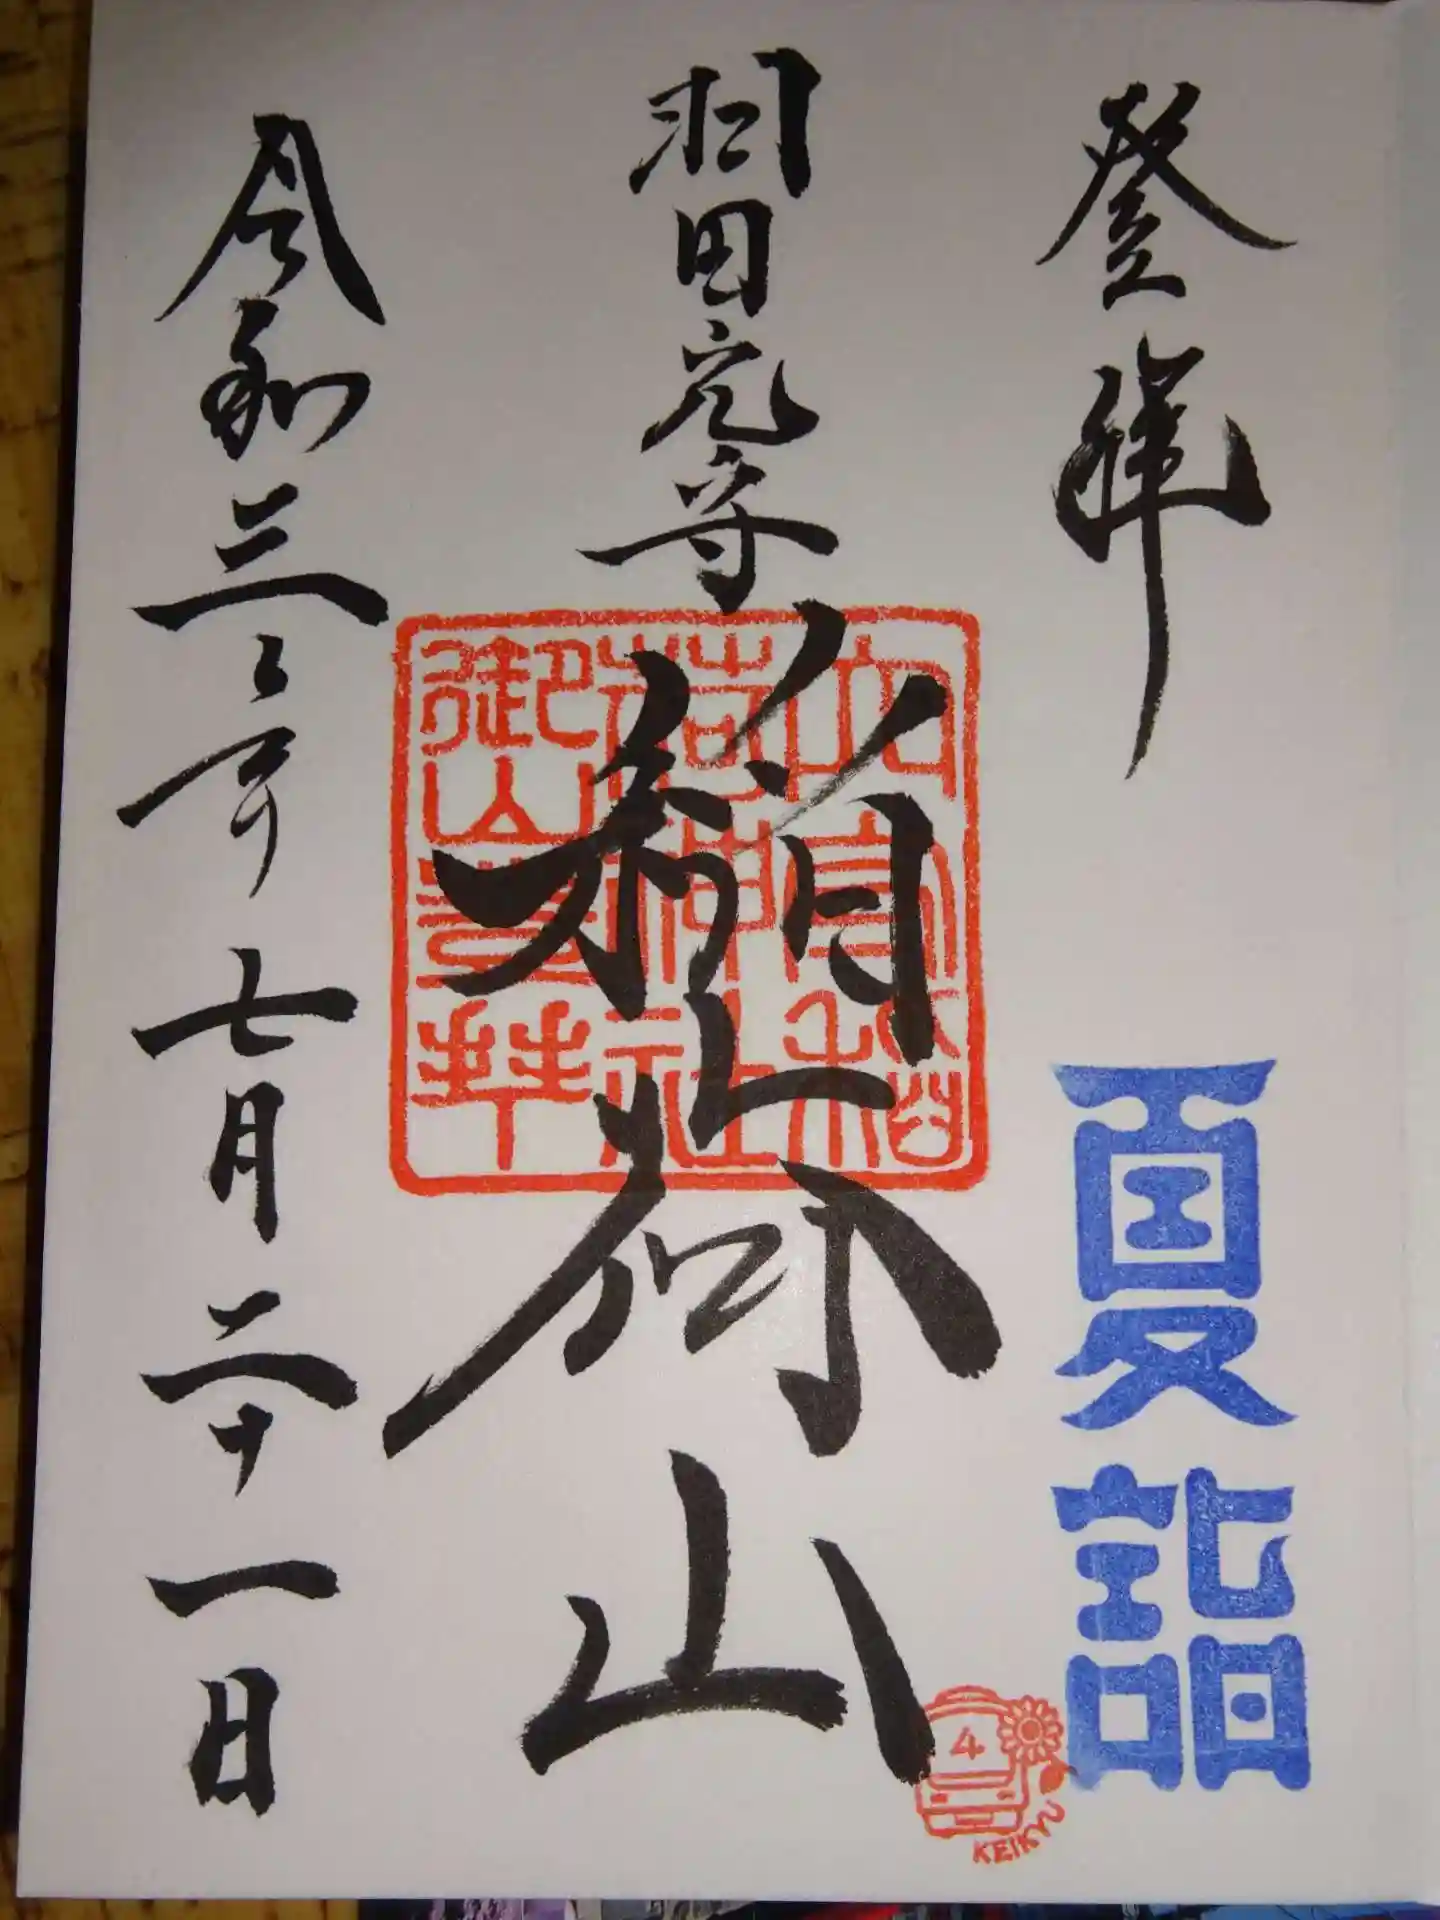 登拝
夏詣
羽田穴守
稲荷山
穴守稲
荷神社
御山参拝
4
KEIKYU
令和三年七月二十一日